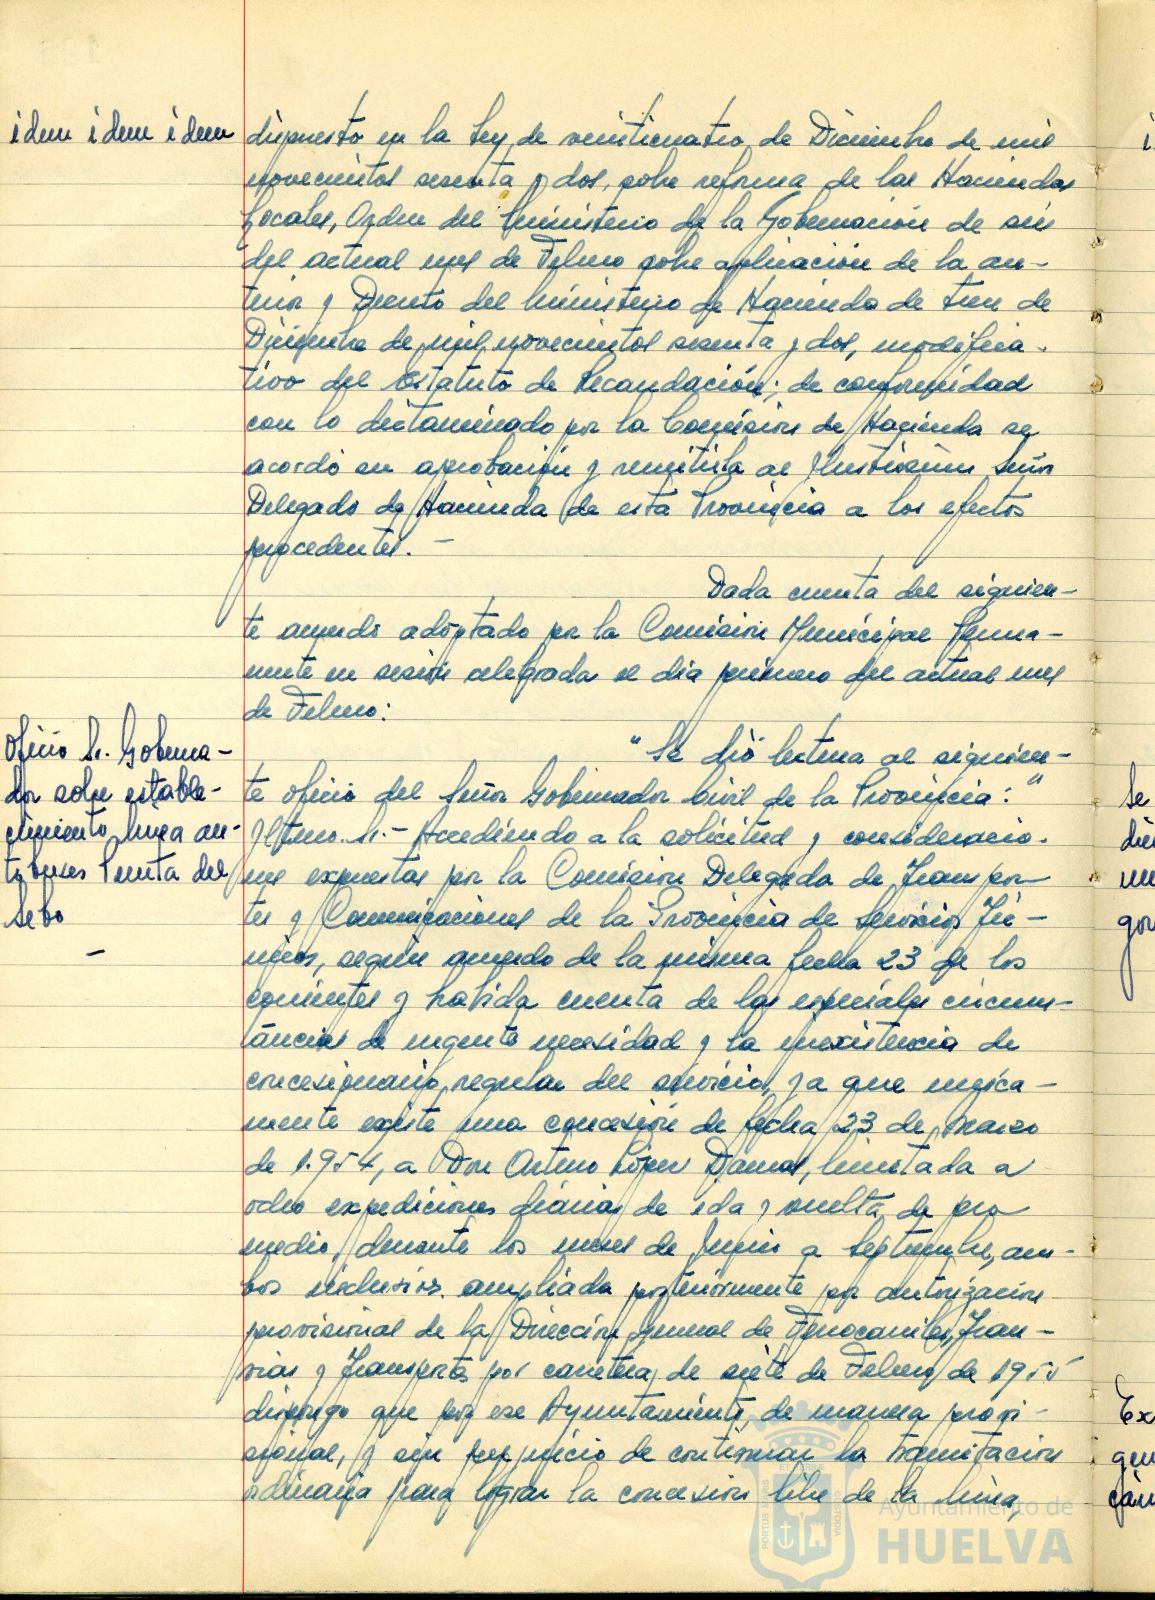 idem idem idem
dispuesto en la Ley de veinticuatro de Diciembre de mil
novecientos sesenta y dos, sobre reforma de las Haciendas
Locales, Orden del Ministerio de la Gobernación de seis
del actual mes de Febrero sobre aplicación de la an-
terior y Decreto del Ministerio de Hacienda de trece de
Diciembre de mil novecientos sesenta y dos, modifica-
tivo del Estatuto de Recaudación; de conformidad
con lo dictaminado por la Comisión de Hacienda se
acordó su aprobación y remitirla al Ilustrísimo Señor
Delegado de Hacienda de esta Provincia a los efectos
procedentes. -
Dada cuenta del siguien-
te acuerdo adoptado por la Comisión Municipal Perma-
nente en sesión celebrada el día primero del actual mes
de Febrero:
Oficio Sr. Goberna-
dor sobre estable-
cimiento línea au-
tobuses Punta del
Sebo
-
"Se dió lectura al siguien-
te oficio del Señor Gobernador Civil de la Provincia: "
Iltmo. Sr. - Accediendo a la solicitud y consideracio-
nes expuestas por la Comisión Delegada de Transpor-
tes y Comunicaciones de la Provincia de Servicios Téc-
nicos, según acuerdo de la misma fecha 23 de los
corrientes y habida cuenta de las especiales circuns-
tancias de urgente necesidad y la inexistencia de
concesionario regular del servicio, ya que única-
mente existe una concesión de fecha 23 de Marzo
de 1.954, a Don Arturo López Damas, limitada a
ocho expediciones diarias de ida y vuelta de pro
medio, durante los meses de Junio a Septiembre, am-
bos inclusive, ampliada posteriormente por autorización
provisional de la Dirección general de Ferrocarriles, Tran-
vías y Transportes por carretera, de siete de Febrero de 1955
dispongo que por ese Ayuntamiento, de manera provi-
sional, y sin perjuicio de continuar la tramitación
ordinaria para lograr la concesión libre de la línea,
Ayuntamiento de
HUELVA